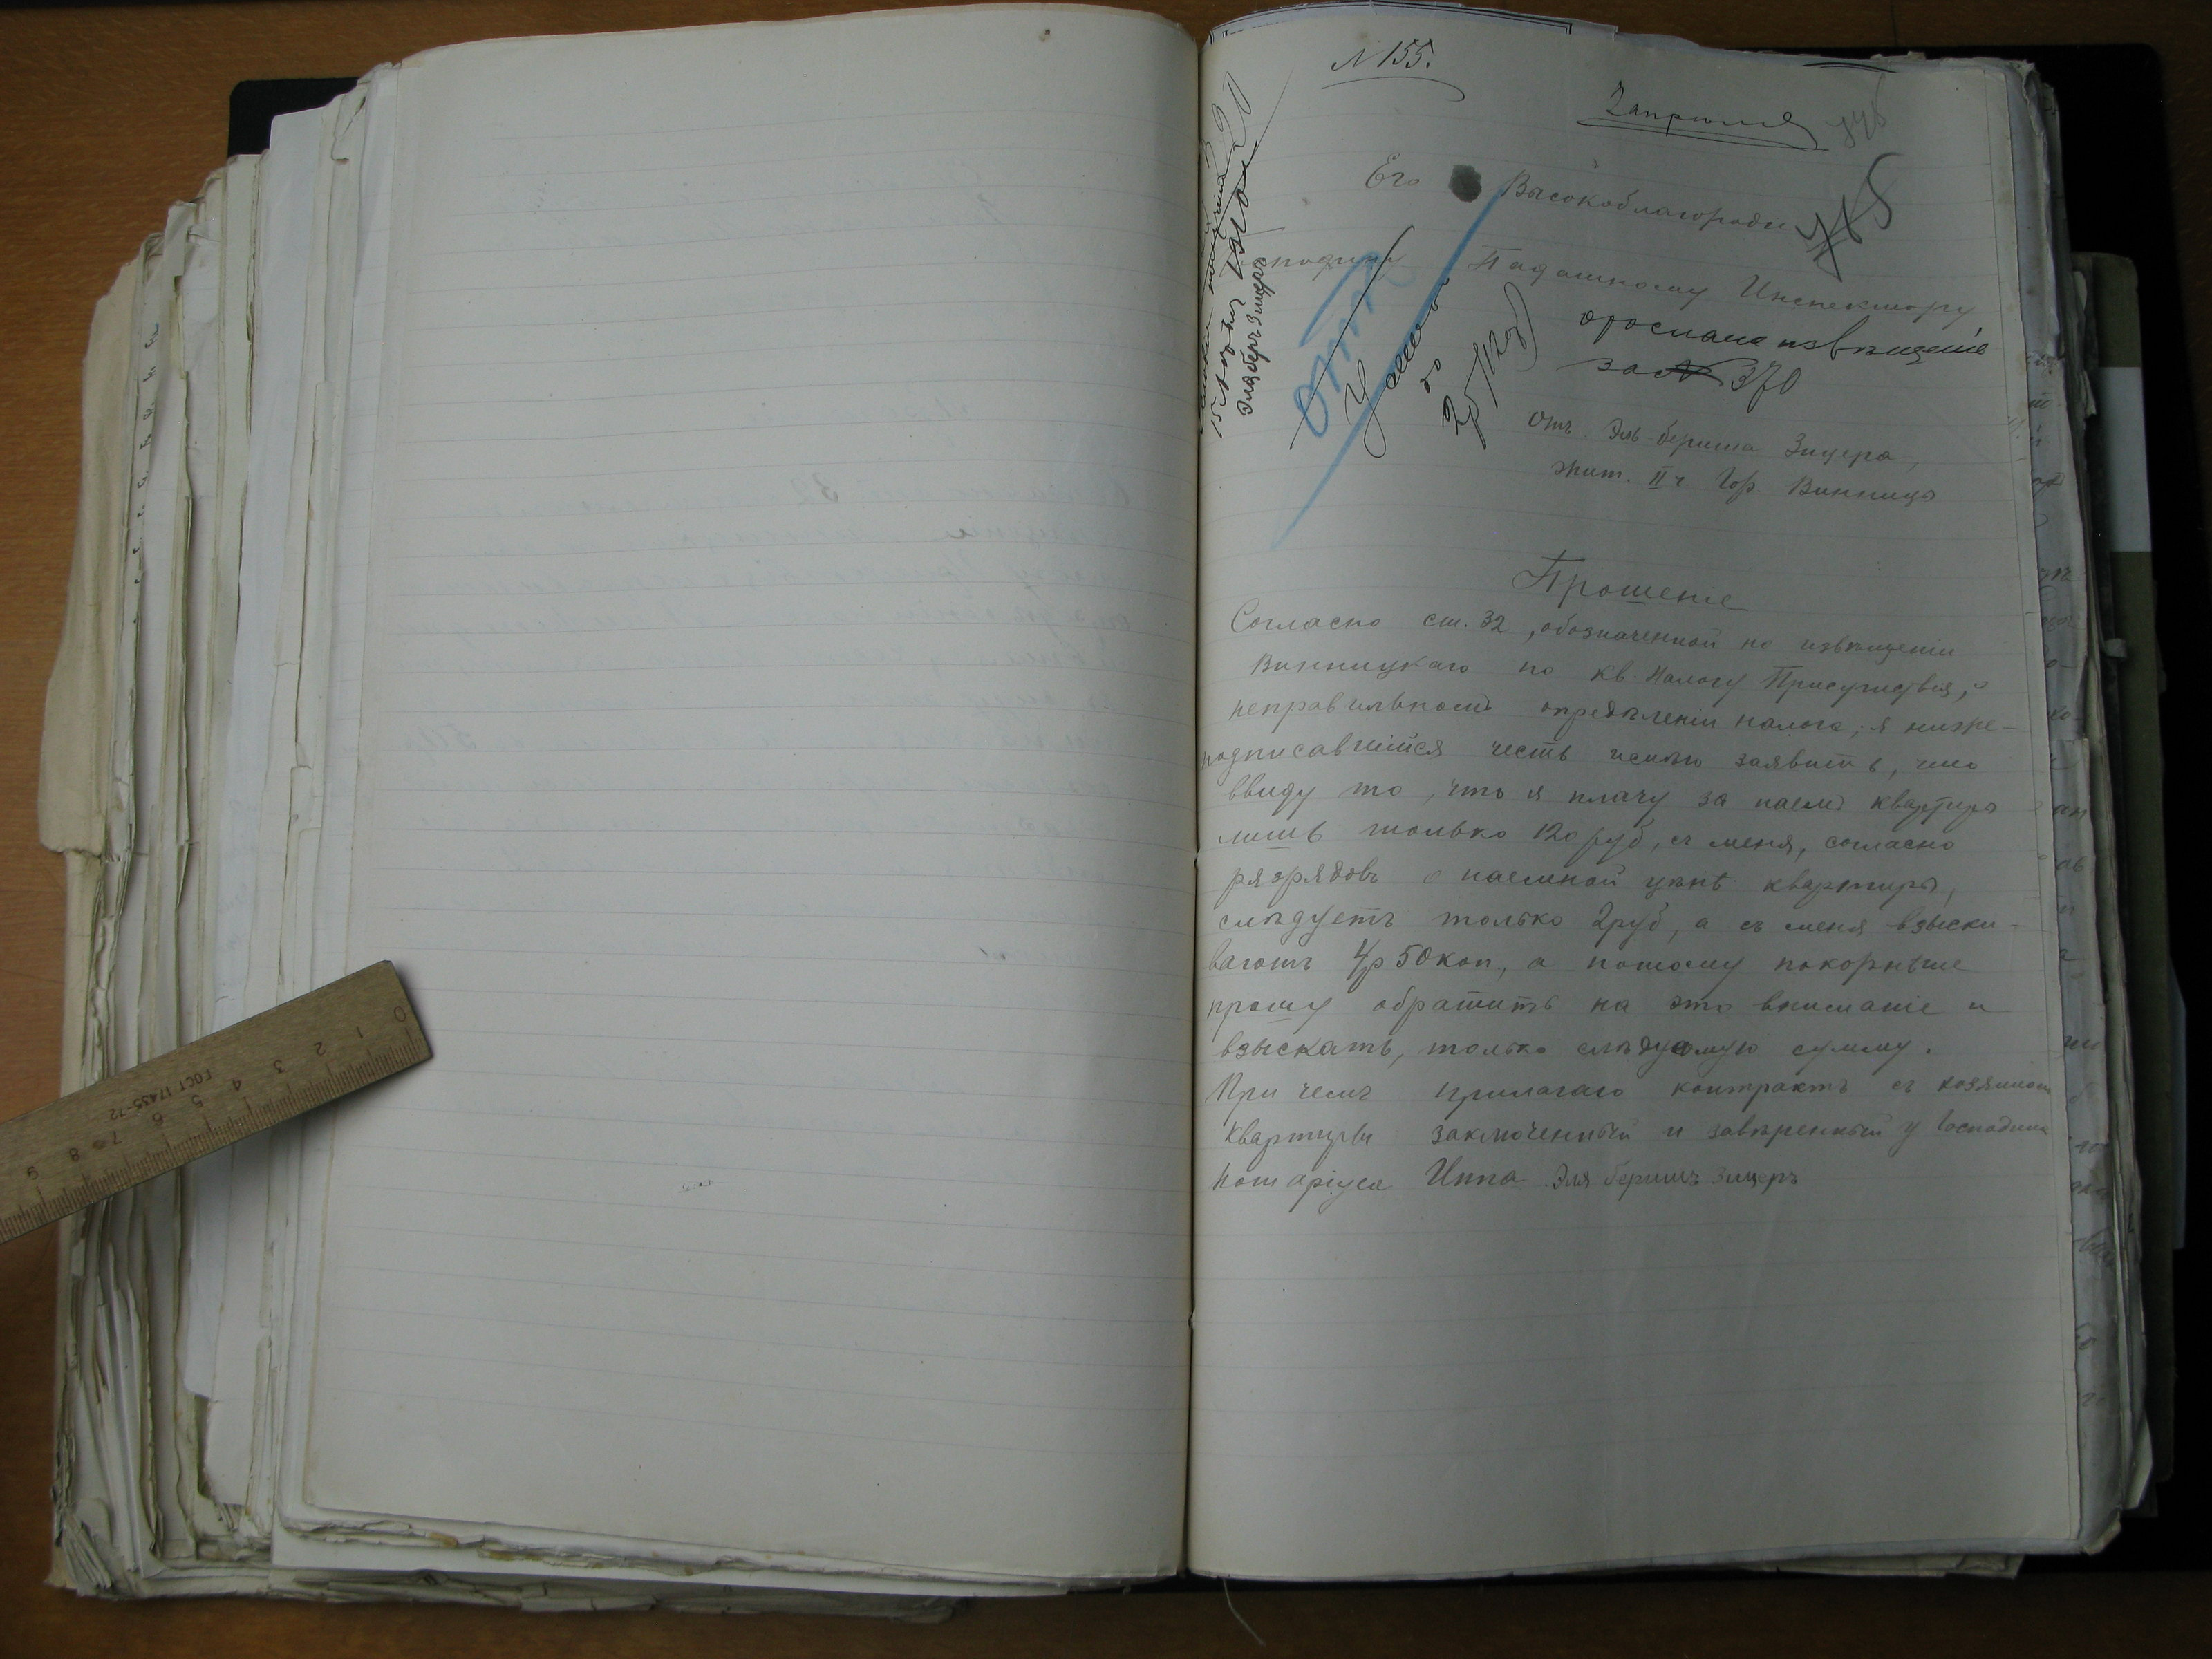 N 155.
2 апрѣля
745
Его Высокоблагородiю
Господину Падатному Инспектору
отослано извѣщенiе
за № 370
Отъ Эль Бериша Зицера,
жит. II ч Гор. Винница
Прошенiе
Согласно ст. 32, обозначенной на извѣщенiи
Винницкаго по кв. Налогу Присутствiя, о
неправильномъ опредѣленiи налога; я ниже-
подписавшiйся честь имѣю заявить, что
ввиду то, что я плачу за наемъ квартиры
лишь только 120 руб, съ меня, согласно
разрядовъ о наемной цѣнѣ квартиры,
слѣдуетъ только 2 руб, а съ меня взыски-
ваютъ 4р 50 коп., а потому покорнѣше
прошу обратить на это вниманiе и
взыскать, только слѣдуемую сумму.
При чемъ прилагаю контрактъ съ хозяиномъ
квартиры заключенный и завѣренный у Господина
Нотарiуса Иппа Эля Беришъ Зицеръ
получилъ
Эля беришъ Зицеръ
0 1 2 3 4 5 6 7 8 9
ГОСТ 17435-72